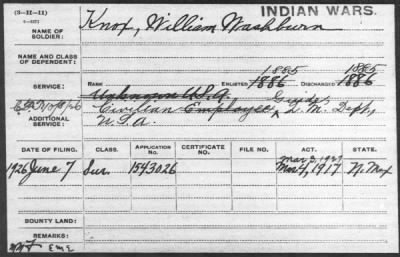 (3-II-II) INDIAN WARS.
NAME OF SOLDIER: Knox, William Washburn
NAME AND CLASS OF DEPENDENT:
1885 1885
SERVICE: RANK ENLISTED 1886 DISCHARGED 1886
Unknown U.S.A.
ADDITIONAL SERVICE: Civilian Employee, Guide, Q. M. Dept,
U.S.A.
DATE OF FILING. CLASS. APPLICATION NO. CERTIFICATE NO. FILE NO. ACT. STATE.
Mar 3, 1927
1926 June 7 Sur. 1543026 Mar 4, 1917 N. Mex
BOUNTY LAND:
REMARKS:
EME